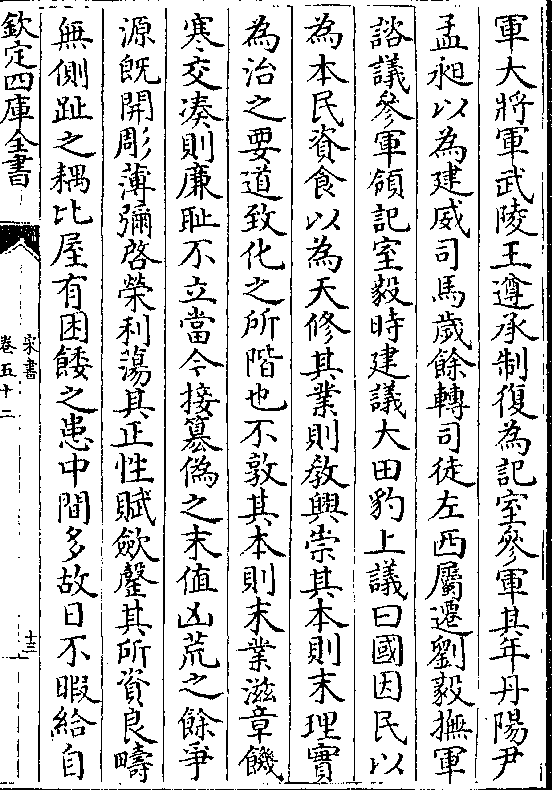 軍大將軍武陵王遵承制復為記室參軍其年丹陽尹
孟昶以為建威司馬歲餘轉司徒左西屬遷劉毅撫軍
諮議參軍領記室毅時建議大田豹上議曰國因民以
為本民資食以為天修其業則教興崇其本則末理實
為治之要道致化之所階也不敦其本則末業滋章饑
寒交湊則廉恥不立當今接簒偽之末值凶荒之餘爭
源既開彫薄彌啓榮利蕩其正性賦斂罄其所資良疇
無側趾之耦比屋有困餧之患中間多故日不暇給自
欽定四庫全書
宋書
卷五十二
十三